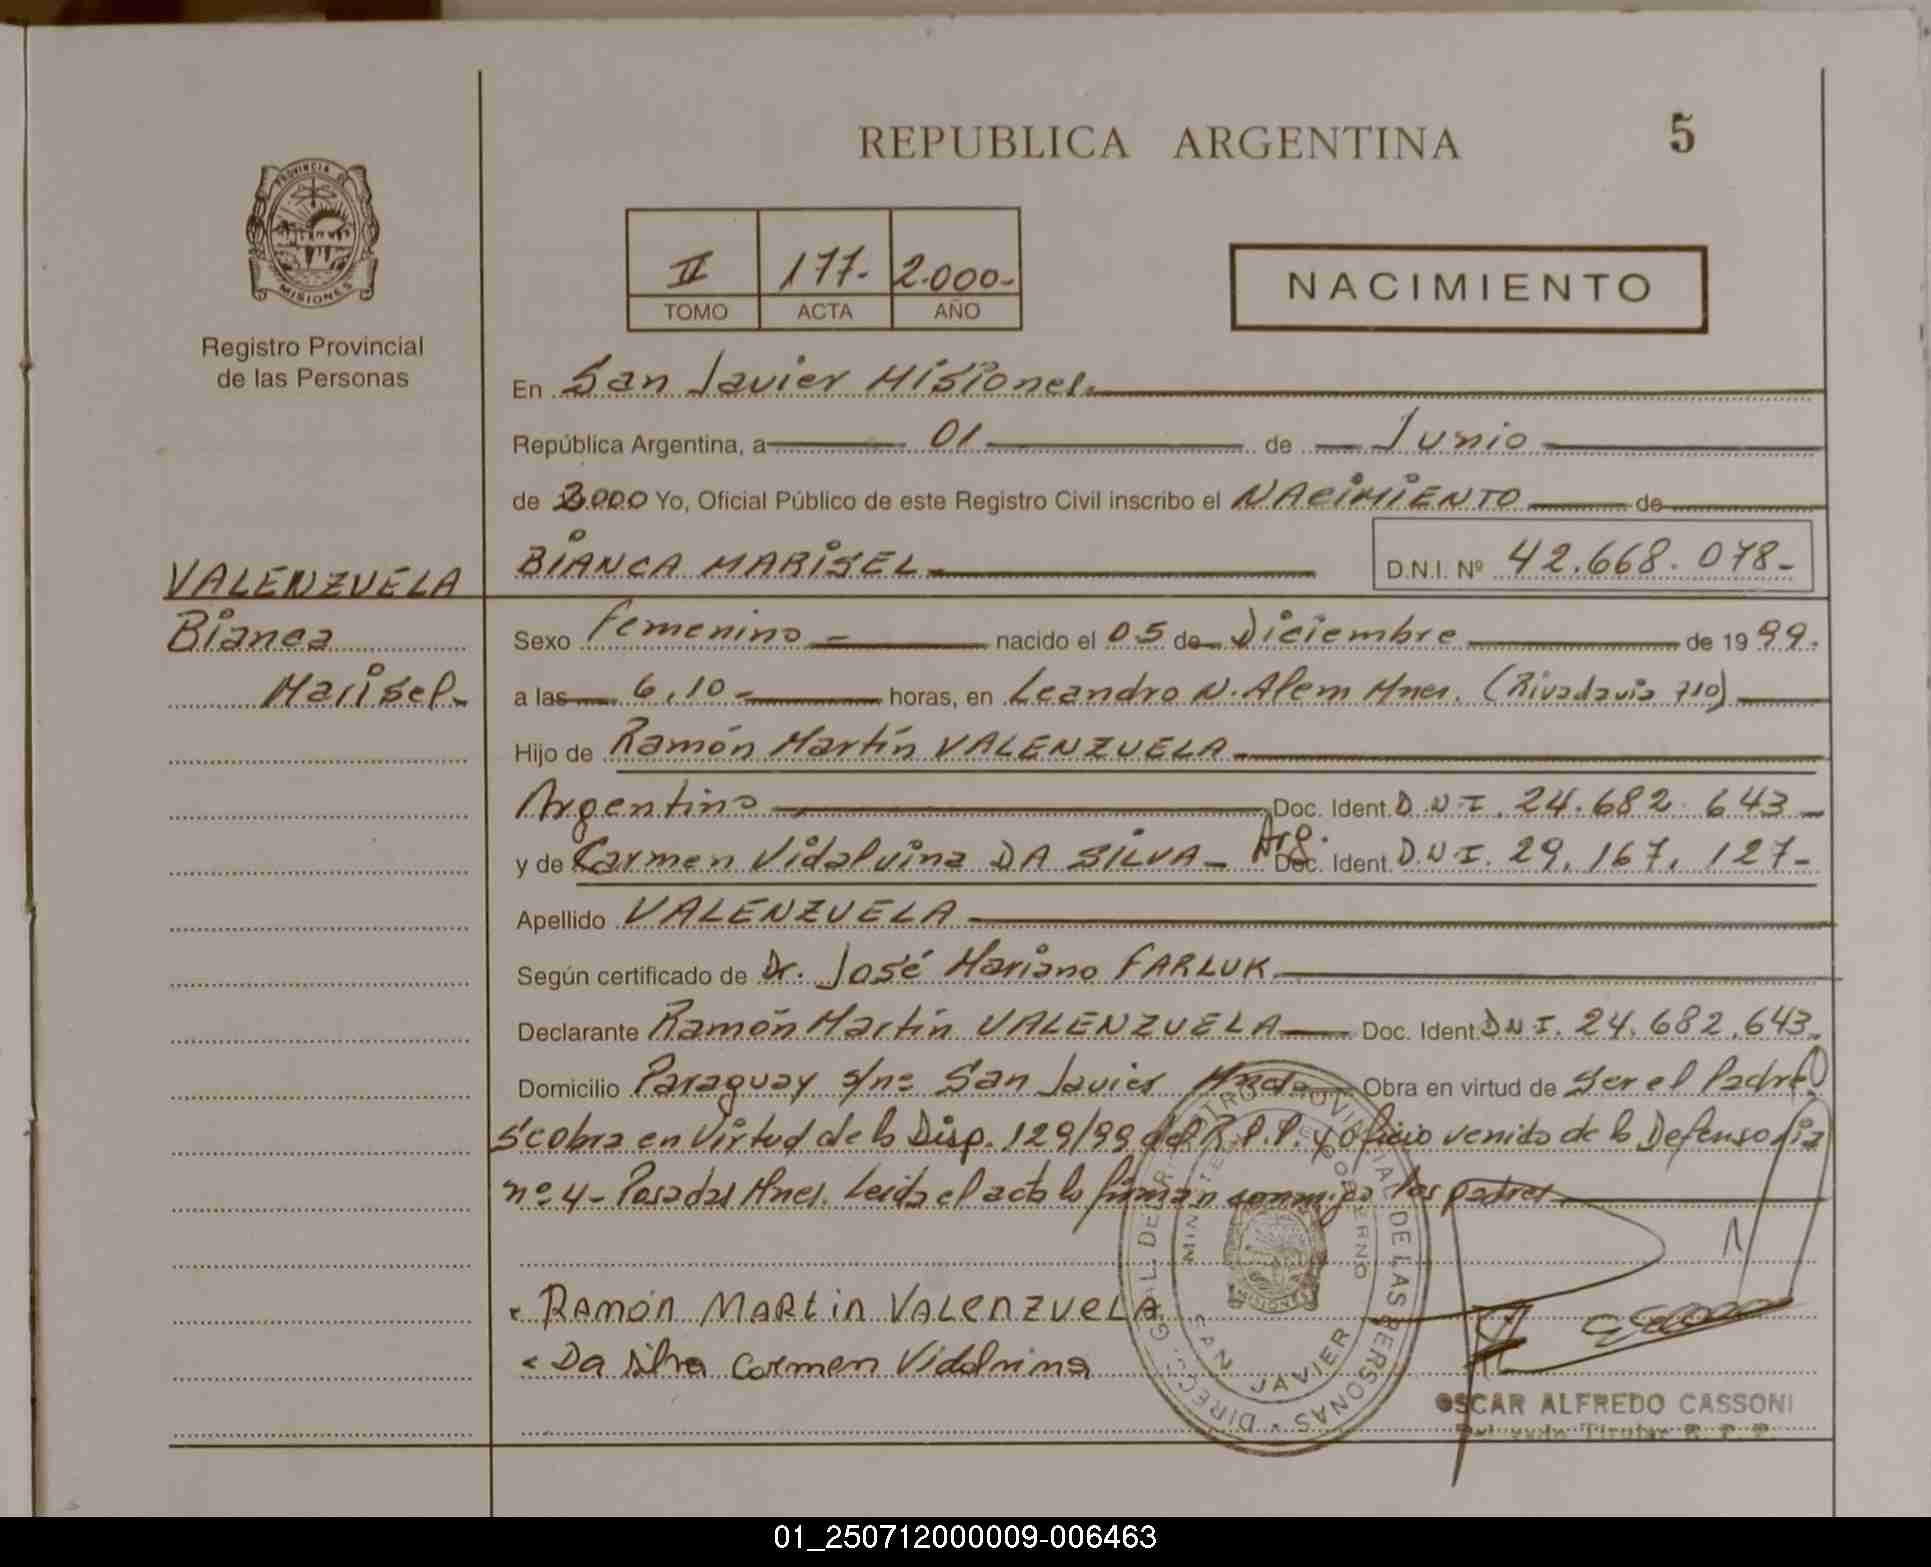 REPUBLICA ARGENTINA
5
PROVINCIA DE
MISIONES
Registro Provincial
de las Personas
II 177- 2.000-
TOMO ACTA AÑO
NACIMIENTO
En San Javier Misiones.
República Argentina, a 01 de Junio
de 2.000 Yo, Oficial Público de este Registro Civil inscribo el NACIMIENTO de
VALENZUELA
Bianca
Marisel-
BIANCA MARISEL D.N.I. Nº 42.668.078-
Sexo Femenino - nacido el 05 de Diciembre de 1999.
a las 6,10- horas, en Leandro N. Alem Mnes. (Rivadavia 710)
Hijo de Ramón Martín VALENZUELA-
Argentino Doc. Ident. D.N.I. 24.682.643-
y de Carmen Vidalvina DA SILVA- Arg. Doc. Ident. D.N.I. 29.167.127-
Apellido VALENZUELA-
Según certificado de Dr. José Mariano FARLUK
Declarante Ramón Martín VALENZUELA Doc. Ident. D.N.I. 24.682.643.
Domicilio Paraguay s/nº San Javier Obra en virtud de ser el Padre
Se obra en virtud de la Disp. 129/99 del R.P.P. y Oficio venido de la Defensoría
nº 4- Posadas Mnes. Leida el acta la firman conmigo los padres
RAMÓN MARTIN VALENZUELA
Da silva Carmen Vidalvina
SAN JAVIER
OSCAR ALFREDO CASSONI
Delegado Titular R. P. P.
01_250712000009-006463